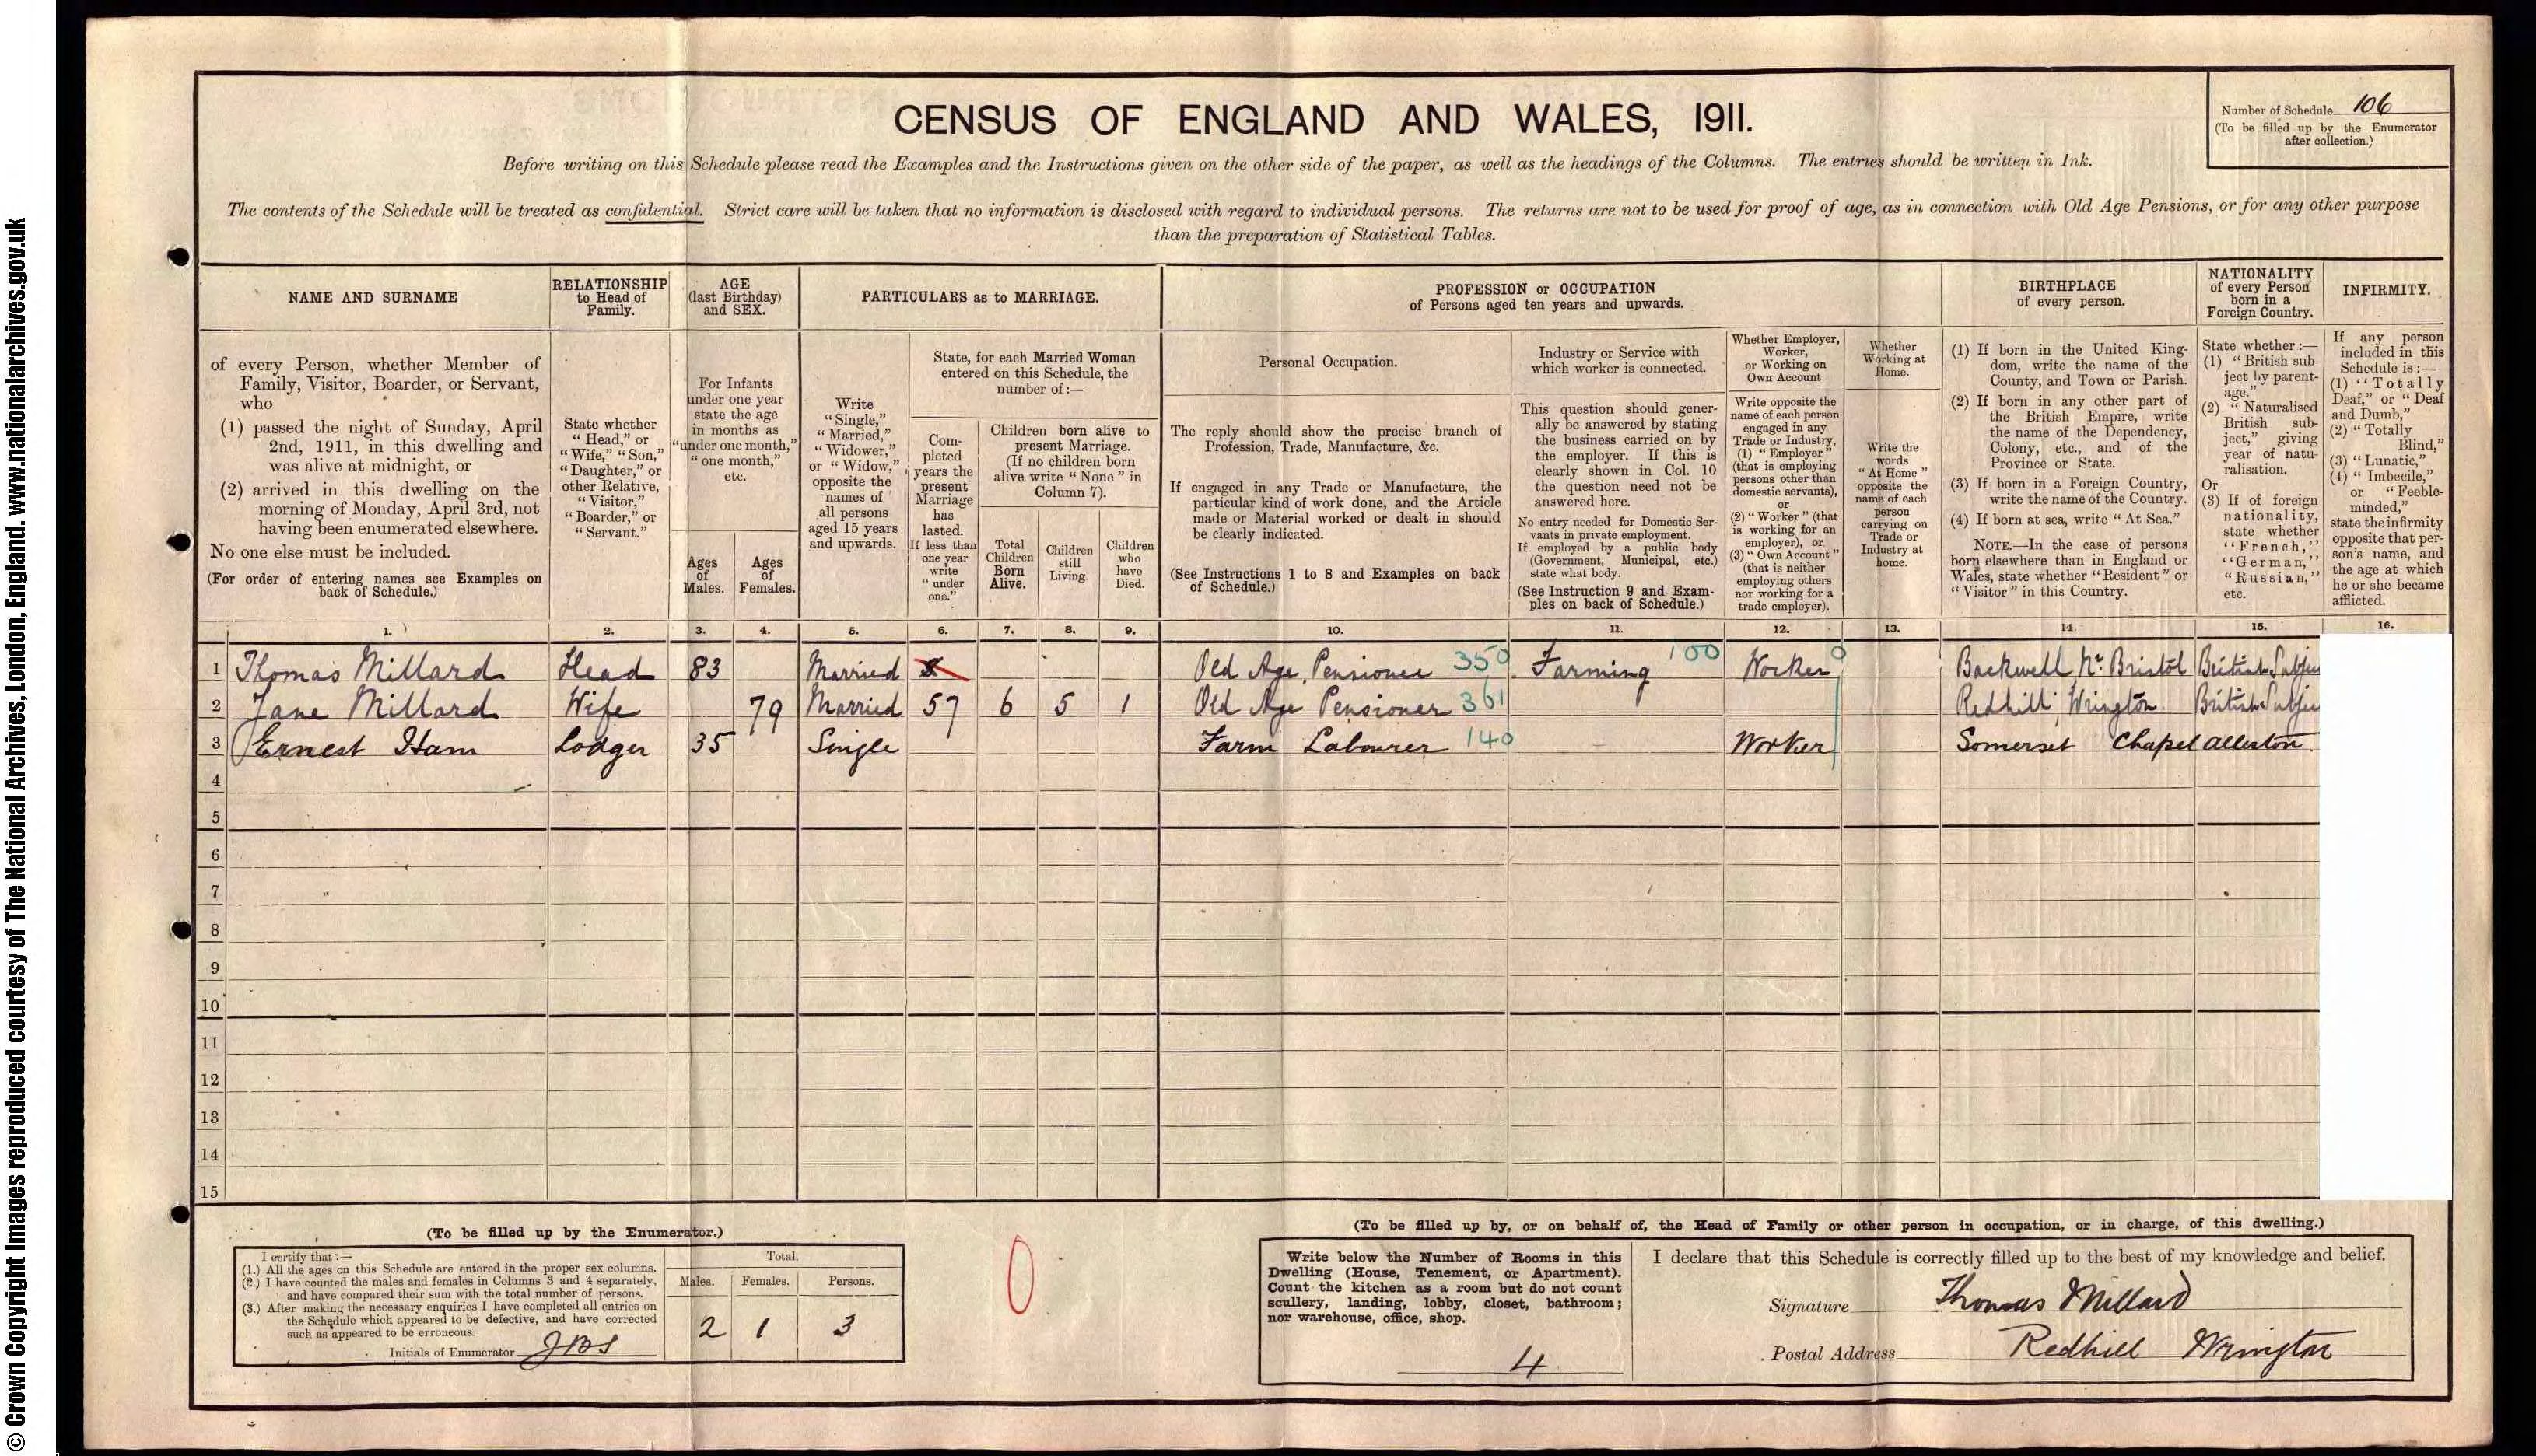 © Crown Copyright Images reproduced courtesy of The National Archives, London, England. www.nationalarchives.gov.uk
CENSUS OF ENGLAND AND WALES, 1911.
Number of Schedule 106
(To be filled up by the Enumerator
after collection.)
Before writing on this Schedule please read the Examples and the Instructions given on the other side of the paper, as well as the headings of the Columns. The entries should be written in Ink.
The contents of the Schedule will be treated as confidential. Strict care will be taken that no information is disclosed with regard to individual persons. The returns are not to be used for proof of age, as in connection with Old Age Pensions, or for any other purpose
than the preparation of Statistical Tables.
NAME AND SURNAME
of every Person, whether Member of
Family, Visitor, Boarder, or Servant,
who
(1) passed the night of Sunday, April
2nd, 1911, in this dwelling and
was alive at midnight, or
(2) arrived in this dwelling on the
morning of Monday, April 3rd, not
having been enumerated elsewhere.
No one else must be included.
(For order of entering names see Examples on
back of Schedule.)
RELATIONSHIP
to Head of
Family.
State whether
"Head," or
"Wife," "Son,"
"Daughter," or
other Relative,
"Visitor,"
"Boarder," or
"Servant."
AGE
(last Birthday)
and SEX.
For Infants
under one year
state the age
in months as
"under one month,"
"one month,"
etc.
Ages
of
Males.
Ages
of
Females.
PARTICULARS as to MARRIAGE.
Write
"Single,"
"Married,"
"Widower,"
or "Widow,"
opposite the
names of
all persons
aged 15 years
and upwards.
State, for each Married Woman
entered on this Schedule, the
number of:—
Com-
pleted
years the
present
Marriage
has
lasted.
If less than
one year
write
"under
one."
Children born alive to
present Marriage.
(If no children born
alive write "None" in
Column 7).
Total
Children
Born
Alive.
Children
still
Living.
Children
who
have
Died.
PROFESSION or OCCUPATION
of Persons aged ten years and upwards.
Personal Occupation.
The reply should show the precise branch of
Profession, Trade, Manufacture, &c.
If engaged in any Trade or Manufacture, the
particular kind of work done, and the Article
made or Material worked or dealt in should
be clearly indicated.
(See Instructions 1 to 8 and Examples on back
of Schedule.)
Industry or Service with
which worker is connected.
This question should gener-
ally be answered by stating
the business carried on by
the employer. If this is
clearly shown in Col. 10
the question need not be
answered here.
No entry needed for Domestic Ser-
vants in private employment.
If employed by a public body
(Government, Municipal, etc.)
state what body.
(See Instruction 9 and Exam-
ples on back of Schedule.)
Whether Employer,
Worker,
or Working on
Own Account.
Write opposite the
name of each person
engaged in any
Trade or Industry,
(1) "Employer"
(that is employing
persons other than
domestic servants),
or
(2) "Worker" (that
is working for an
employer), or
(3) "Own Account"
(that is neither
employing others
nor working for a
trade employer).
Whether
Working at
Home.
Write the
words
"At Home"
opposite the
name of each
person
carrying on
Trade or
Industry at
home.
BIRTHPLACE
of every person.
(1) If born in the United King-
dom, write the name of the
County, and Town or Parish.
(2) If born in any other part of
the British Empire, write
the name of the Dependency,
Colony, etc., and of the
Province or State.
(3) If born in a Foreign Country,
write the name of the Country.
(4) If born at sea, write "At Sea."
NOTE.—In the case of persons
born elsewhere than in England or
Wales, state whether "Resident" or
"Visitor" in this Country.
NATIONALITY
of every Person
born in a
Foreign Country.
State whether:—
(1) "British sub-
ject by parent-
age."
(2) "Naturalised
British sub-
ject," giving
year of natu-
ralisation.
Or
(3) If of foreign
nationality,
state whether
"French,"
"German,"
"Russian,"
etc.
INFIRMITY.
If any person
included in this
Schedule is:—
(1) "Totally
Deaf," or "Deaf
and Dumb,"
(2) "Totally
Blind,"
(3) "Lunatic,"
(4) "Imbecile,"
or "Feeble-
minded,"
state the infirmity
opposite that per-
son's name, and
the age at which
he or she became
afflicted.
1. 2. 3. 4. 5. 6. 7. 8. 9. 10. 11. 12. 13. 14. 15. 16.
1 Thomas Millard Head 83 Married Old Age Pensioner 350 Farming 100 Worker 0 Backwell Nr. Bristol British Subjec
2 Jane Millard Wife 79 Married 57 6 5 1 Old Age Pensioner 361 Redhill, Wrington British Subjec
3 Ernest Ham Lodger 35 Single Farm Labourer 140 Worker Somerset Chapel Allerton.
4
5
6
7
8
9
10
11
12
13
14
15
(To be filled up by the Enumerator.)
I certify that:—
(1.) All the ages on this Schedule are entered in the proper sex columns.
(2.) I have counted the males and females in Columns 3 and 4 separately,
and have compared their sum with the total number of persons.
(3.) After making the necessary enquiries I have completed all entries on
the Schedule which appeared to be defective, and have corrected
such as appeared to be erroneous.
Initials of Enumerator JBS
Total.
Males. Females. Persons.
2 1 3
0
(To be filled up by, or on behalf of, the Head of Family or other person in occupation, or in charge, of this dwelling.)
Write below the Number of Rooms in this
Dwelling (House, Tenement, or Apartment).
Count the kitchen as a room but do not count
scullery, landing, lobby, closet, bathroom;
nor warehouse, office, shop.
4
I declare that this Schedule is correctly filled up to the best of my knowledge and belief.
Signature Thomas Millard
Postal Address Redhill Wrington